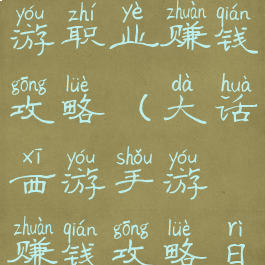 yóu zhí yè zhuàn qián
游职业赚钱
gōng lüè dà huà
攻略（大话
xī yóu shǒu yóu
西游手游
zhuàn qián gōng lüè rì
赚钱攻略日